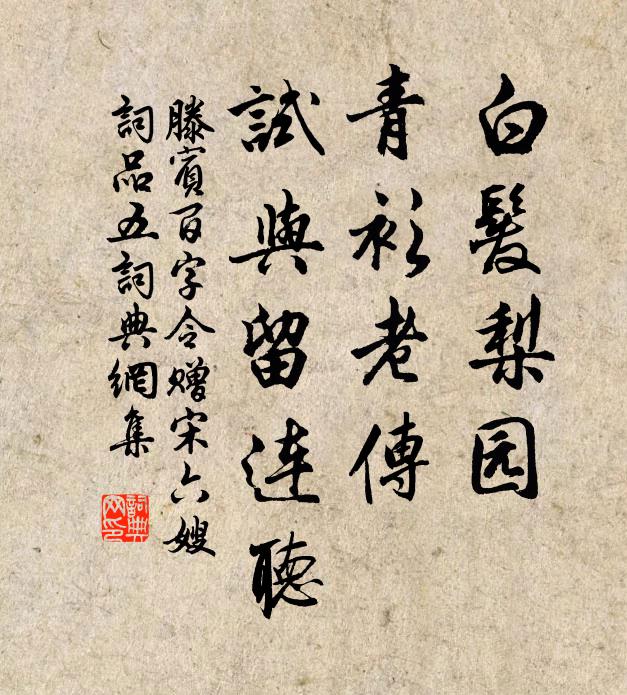 白髮梨园
青衫老傳
試與留連聽
滕賓百字令赠宋六嫂
詞品五詞典網集
詞典网印